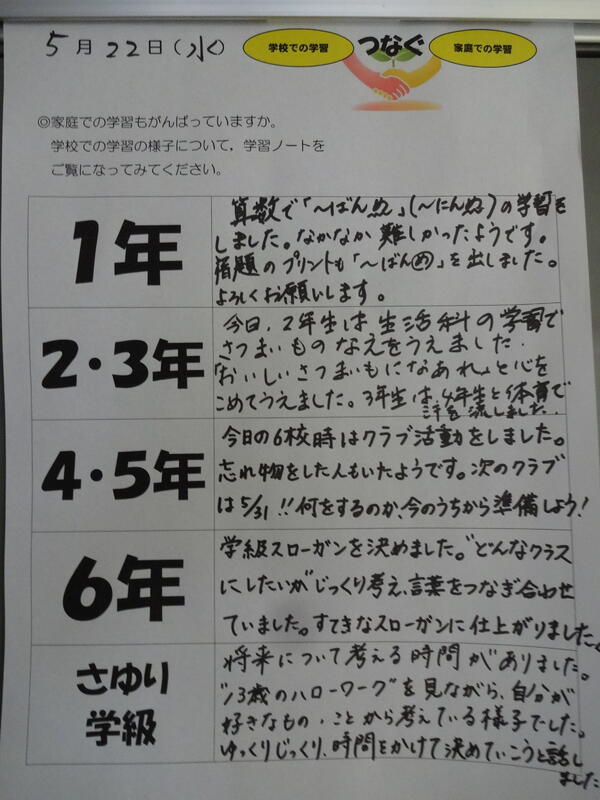 5月22日(水)
学校での学習 つなぐ 家庭での学習
◎家庭での学習もがんばっていますか。
学校での学習の様子について,学習ノートを
ご覧になってみてください。
1年
算数で「~ばんめ」(~にんめ)の学習を
しました。なかなか難しかったようです。
宿題のプリントも「~ばん目」を出しました。
よろしくお願いします。
2・3年
今日,2年生は生活科の学習で
さつまいものなえをうえました.
「おいしいさつまいもになあれ」と心を
こめてうえました。3年生は,4年生と体育で
汗を流しました.
4・5年
今日の6校時はクラブ活動をしました。
忘れ物をした人もいたようです。次のクラブ
は5/31!!何をするのか、今のうちから準備しよう!
6年
学級スローガンを決めました。"どんなクラス
にしたいか"じっくり考え、言葉をつなぎ合わせ
ていました。すてきなスローガンに仕上がりました。
さゆり
学級
将来について考える時間がありました。
"13歳のハローワーク"を見ながら、自分が
好きなもの・ことから考えている様子でした。
ゆっくりじっくり、時間をかけて決めていこうと話し
ました